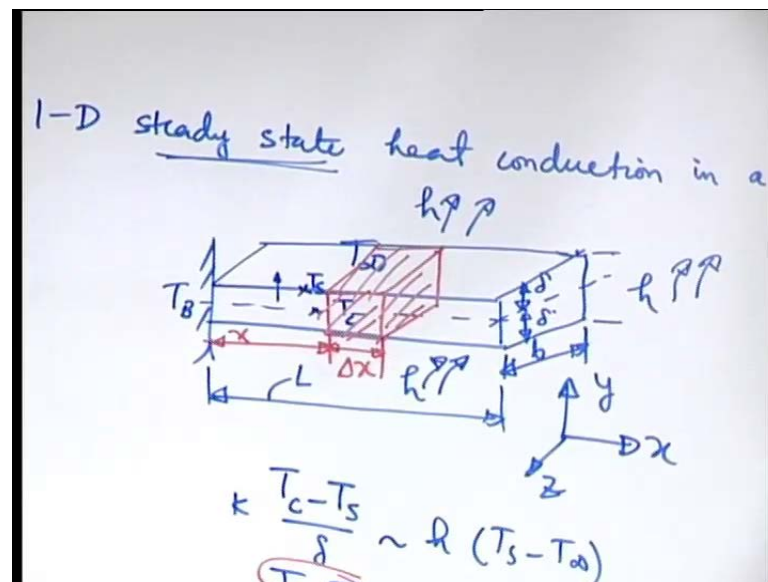 1-D steady state heat conduction in a
h
T∞
T_B
T_S
T_C
δ
δ
h
x
Δx
h
b
L
y
x
z
k (T_C - T_S)/δ ~ h (T_S - T∞)